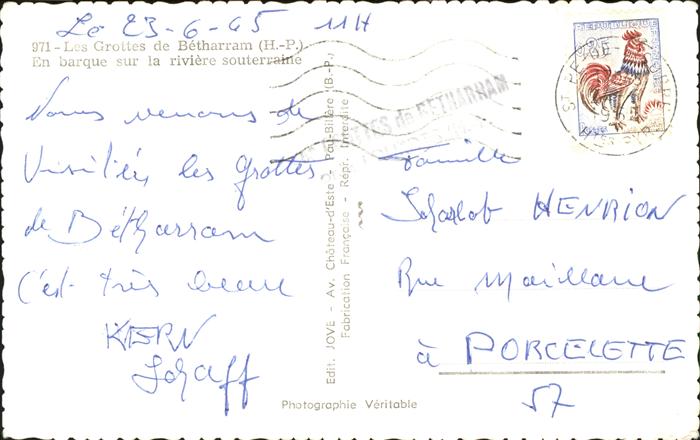 Le 23-6-65 11H
971 - Les Grottes de Bétharram (H.-P.)
En barque sur la rivière souterraine
Nous venons de
Visitées les Grottes
de Bétharram
C'est très beau
KERN
Schaff
Edit. JOVE - Av. Château-d'Este - Pau-Billère (B.-P.)
Fabrication Française - Répr. Interdite
Photographie Véritable
GROTTES de BÉTHARRAM
REPUBLIQUE FRANÇAISE
Famille
HENRION
Rue Maillane
à PORCELETTE
57